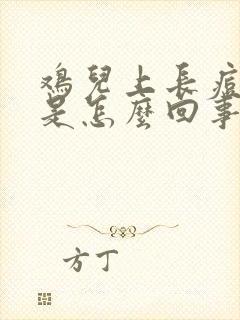 鸡兒上長痘
是怎麼回事
方丁